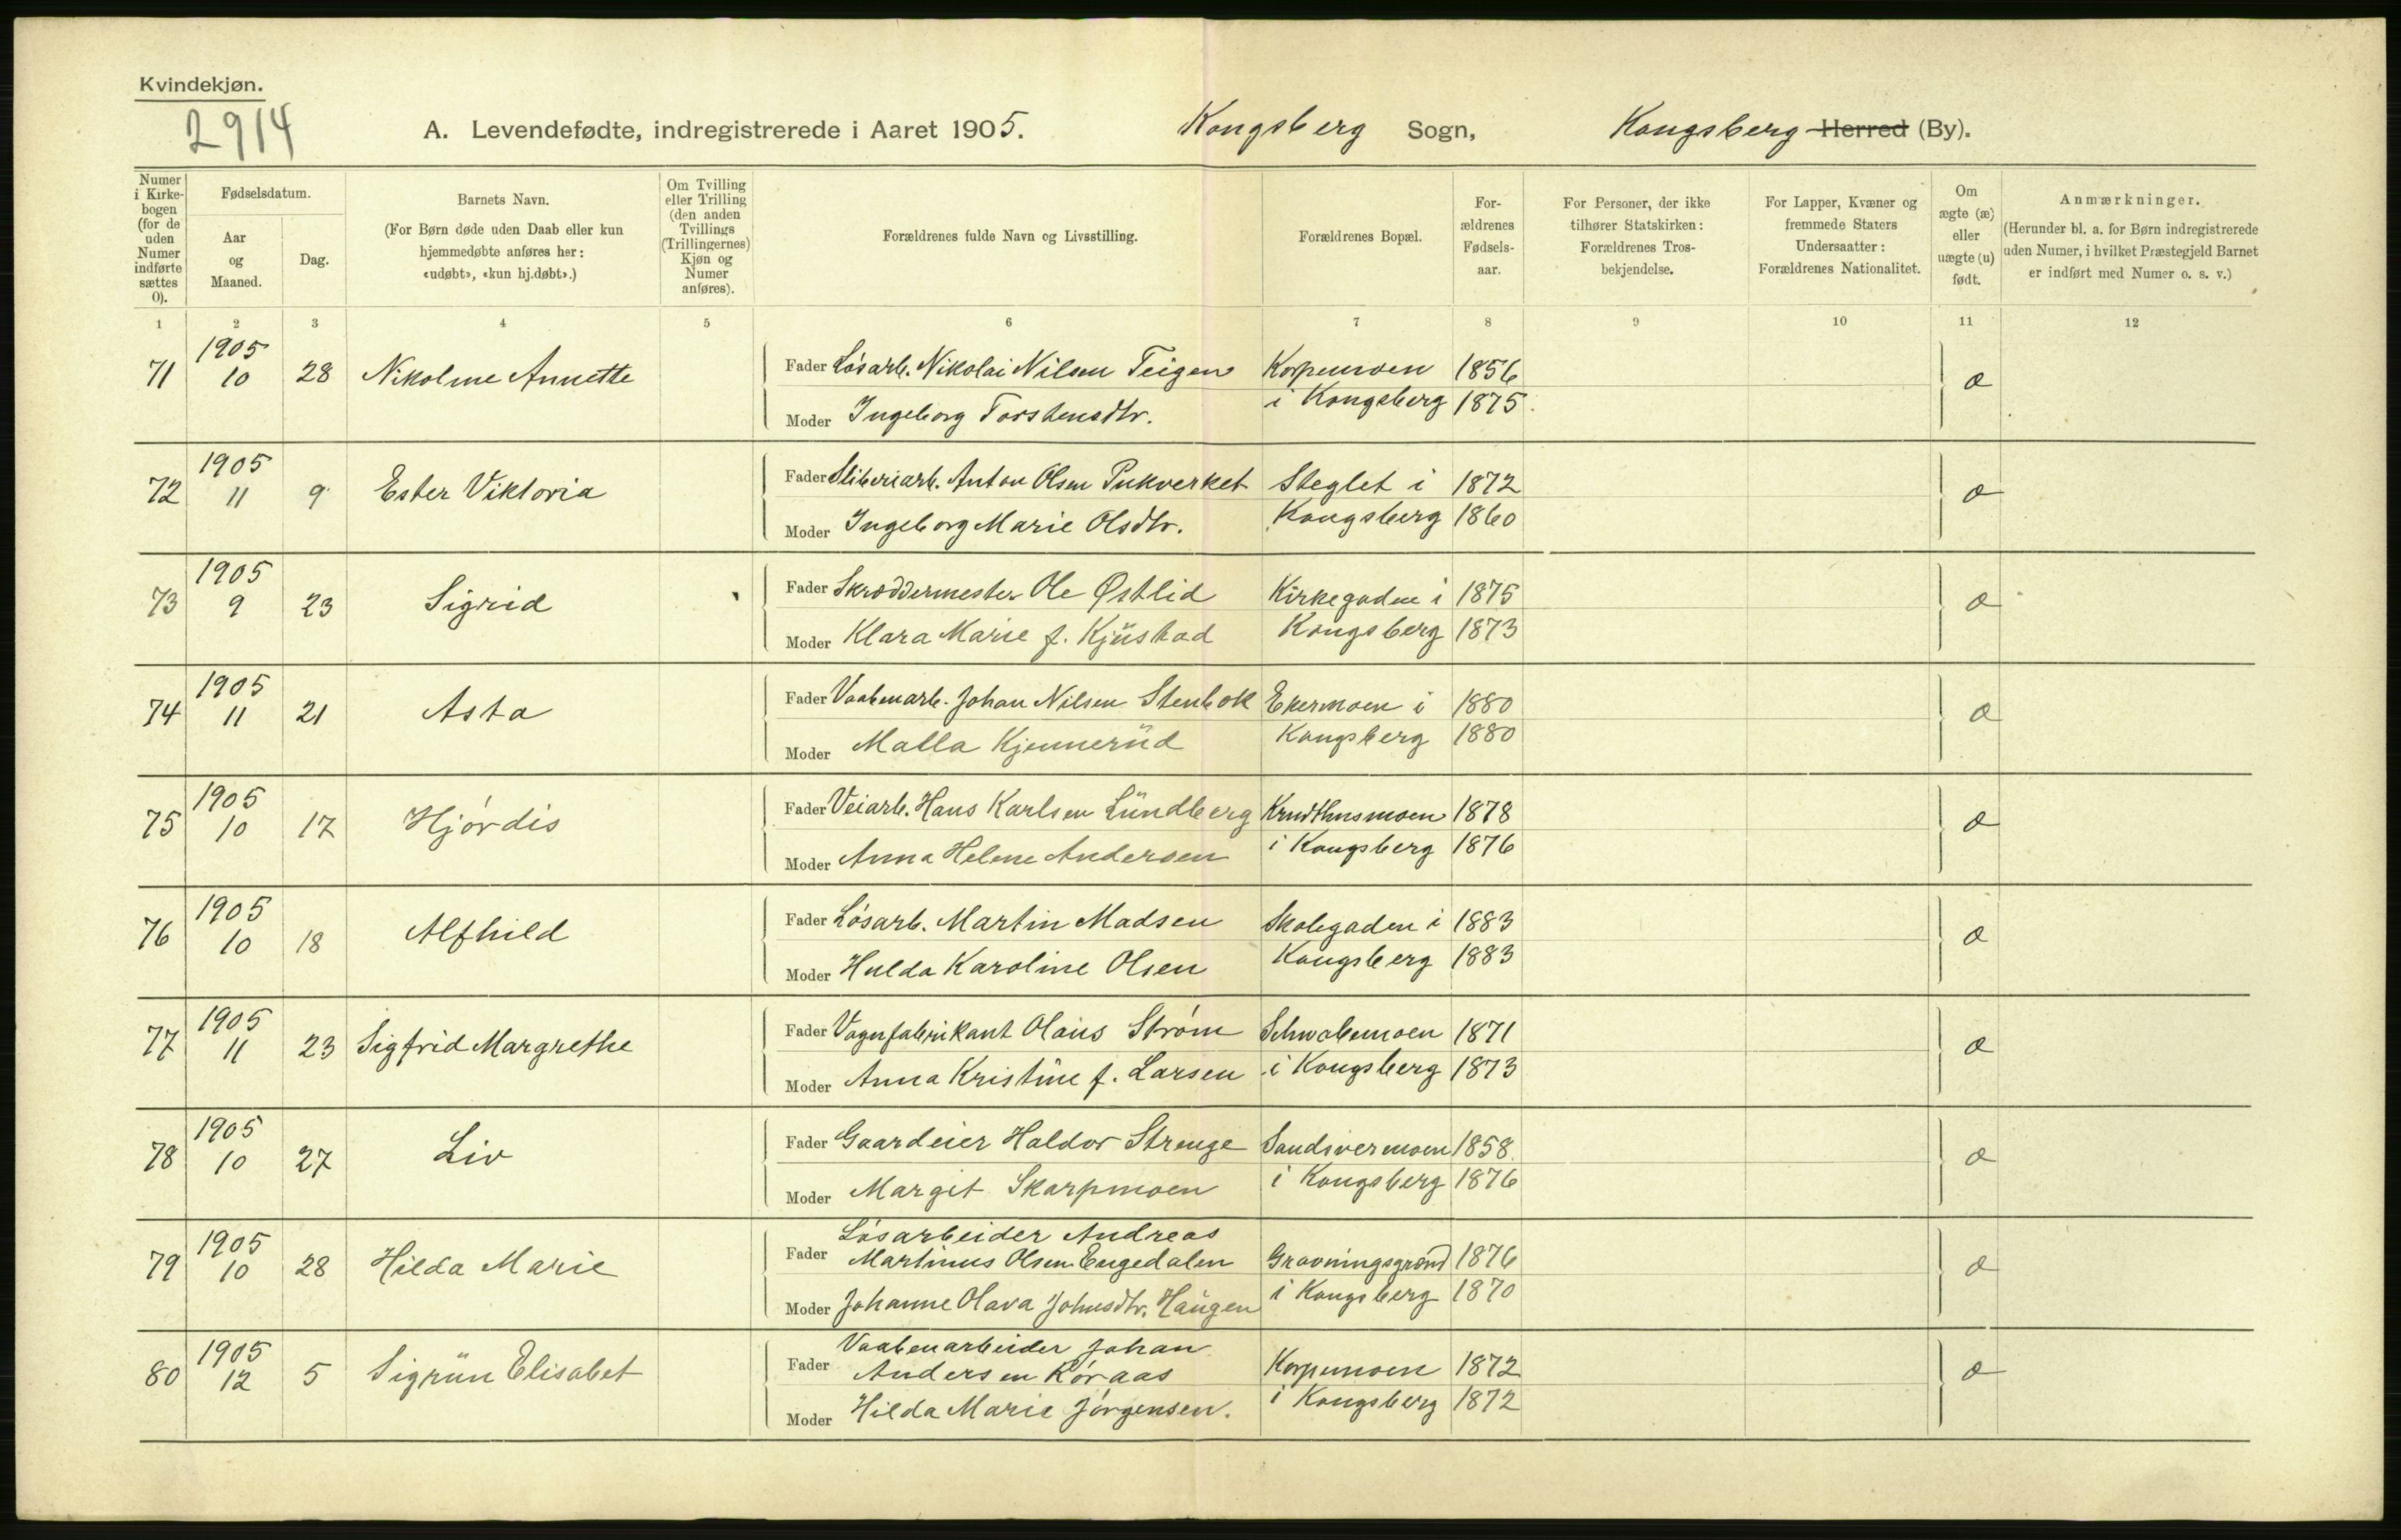 Kvindekjøn.
2914
A. Levendefødte, indregistrerede i Aaret 1905. Kongsberg Sogn, Kongsberg Herred (By).
Numer i Kirkebogen (for de uden Numer indførte sættes 0).
Fødselsdatum.
Aar og Maaned.
Dag.
Barnets Navn.
(For Børn døde uden Daab eller kun hjemmedøbte anføres her: «udøbt», «kun hj.døbt».)
Om Tvilling eller Trilling (den anden Tvillings (Trillingernes) Kjøn og Numer anføres).
Forældrenes fulde Navn og Livsstilling.
Forældrenes Bopæl.
Forældrenes Fødselsaar.
For Personer, der ikke tilhører Statskirken: Forældrenes Trosbekjendelse.
For Lapper, Kvæner og fremmede Staters Undersaatter: Forældrenes Nationalitet.
Om ægte (æ) eller uægte (u) født.
Anmærkninger.
(Herunder bl. a. for Børn indregistrerede uden Numer, i hvilket Præstegjeld Barnet er indført med Numer o. s. v.)
1 2 3 4 5 6 7 8 9 10 11 12
1905
71 10 28 Nikoline Annette Fader Løsarb. Nikolai Nilsen Teigen Korpemoen 1856 æ
Moder Ingeborg Torstensdtr. i Kongsberg 1875
1905
72 11 9 Ester Viktoria Fader Sliberiarb. Anton Olsen Pukverket Steglet i 1872 æ
Moder Ingeborg Marie Olsdtr. Kongsberg 1860
1905
73 9 23 Sigrid Fader Skræddermester Ole Østlid Kirkegaden i 1875 æ
Moder Klara Marie f. Kjustad Kongsberg 1873
1905
74 11 21 Asta Fader Vaabenarb. Johan Nilsen Stenbok Ekermoen i 1880 æ
Moder Malla Kjennerud Kongsberg 1880
1905
75 10 17 Hjørdis Fader Veiarb. Hans Karlsen Lundberg Krudthusmoen 1878 æ
Moder Anna Helene Andersen i Kongsberg 1876
1905
76 10 18 Alfhild Fader Løsarb. Martin Madsen Skolegaden i 1883 æ
Moder Hulda Karoline Olsen Kongsberg 1883
1905
77 11 23 Sigfrid Margrethe Fader Vognfabrikant Olaus Strøm Schwabemoen 1871 æ
Moder Anna Kristine f. Larsen i Kongsberg 1873
1905
78 10 27 Liv Fader Gaardeier Haldor Strenge Sandsvermoen 1858 æ
Moder Margit Skarpmoen i Kongsberg 1876
1905 Løsarbeider Andreas
79 10 28 Hilda Marie Fader Martinus Olsen Engedalen Gravningsgrænd 1876 æ
Moder Johanne Olava Johnsdtr. Haugen i Kongsberg 1870
1905 Vaabenarbeider Johan
80 12 5 Sigrun Elisabet Fader Andersen Køraas Korpemoen 1872 æ
Moder Hilda Marie Jørgensen. i Kongsberg 1872